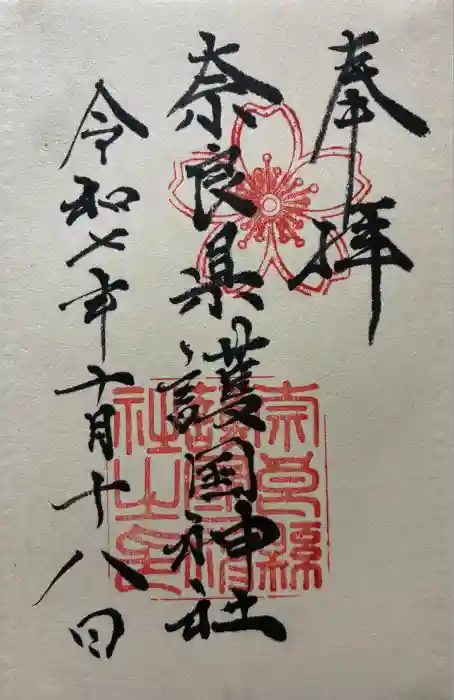 奉拝
奈良県護国神社
令和七年十月十八日
奈良縣護國神社之印